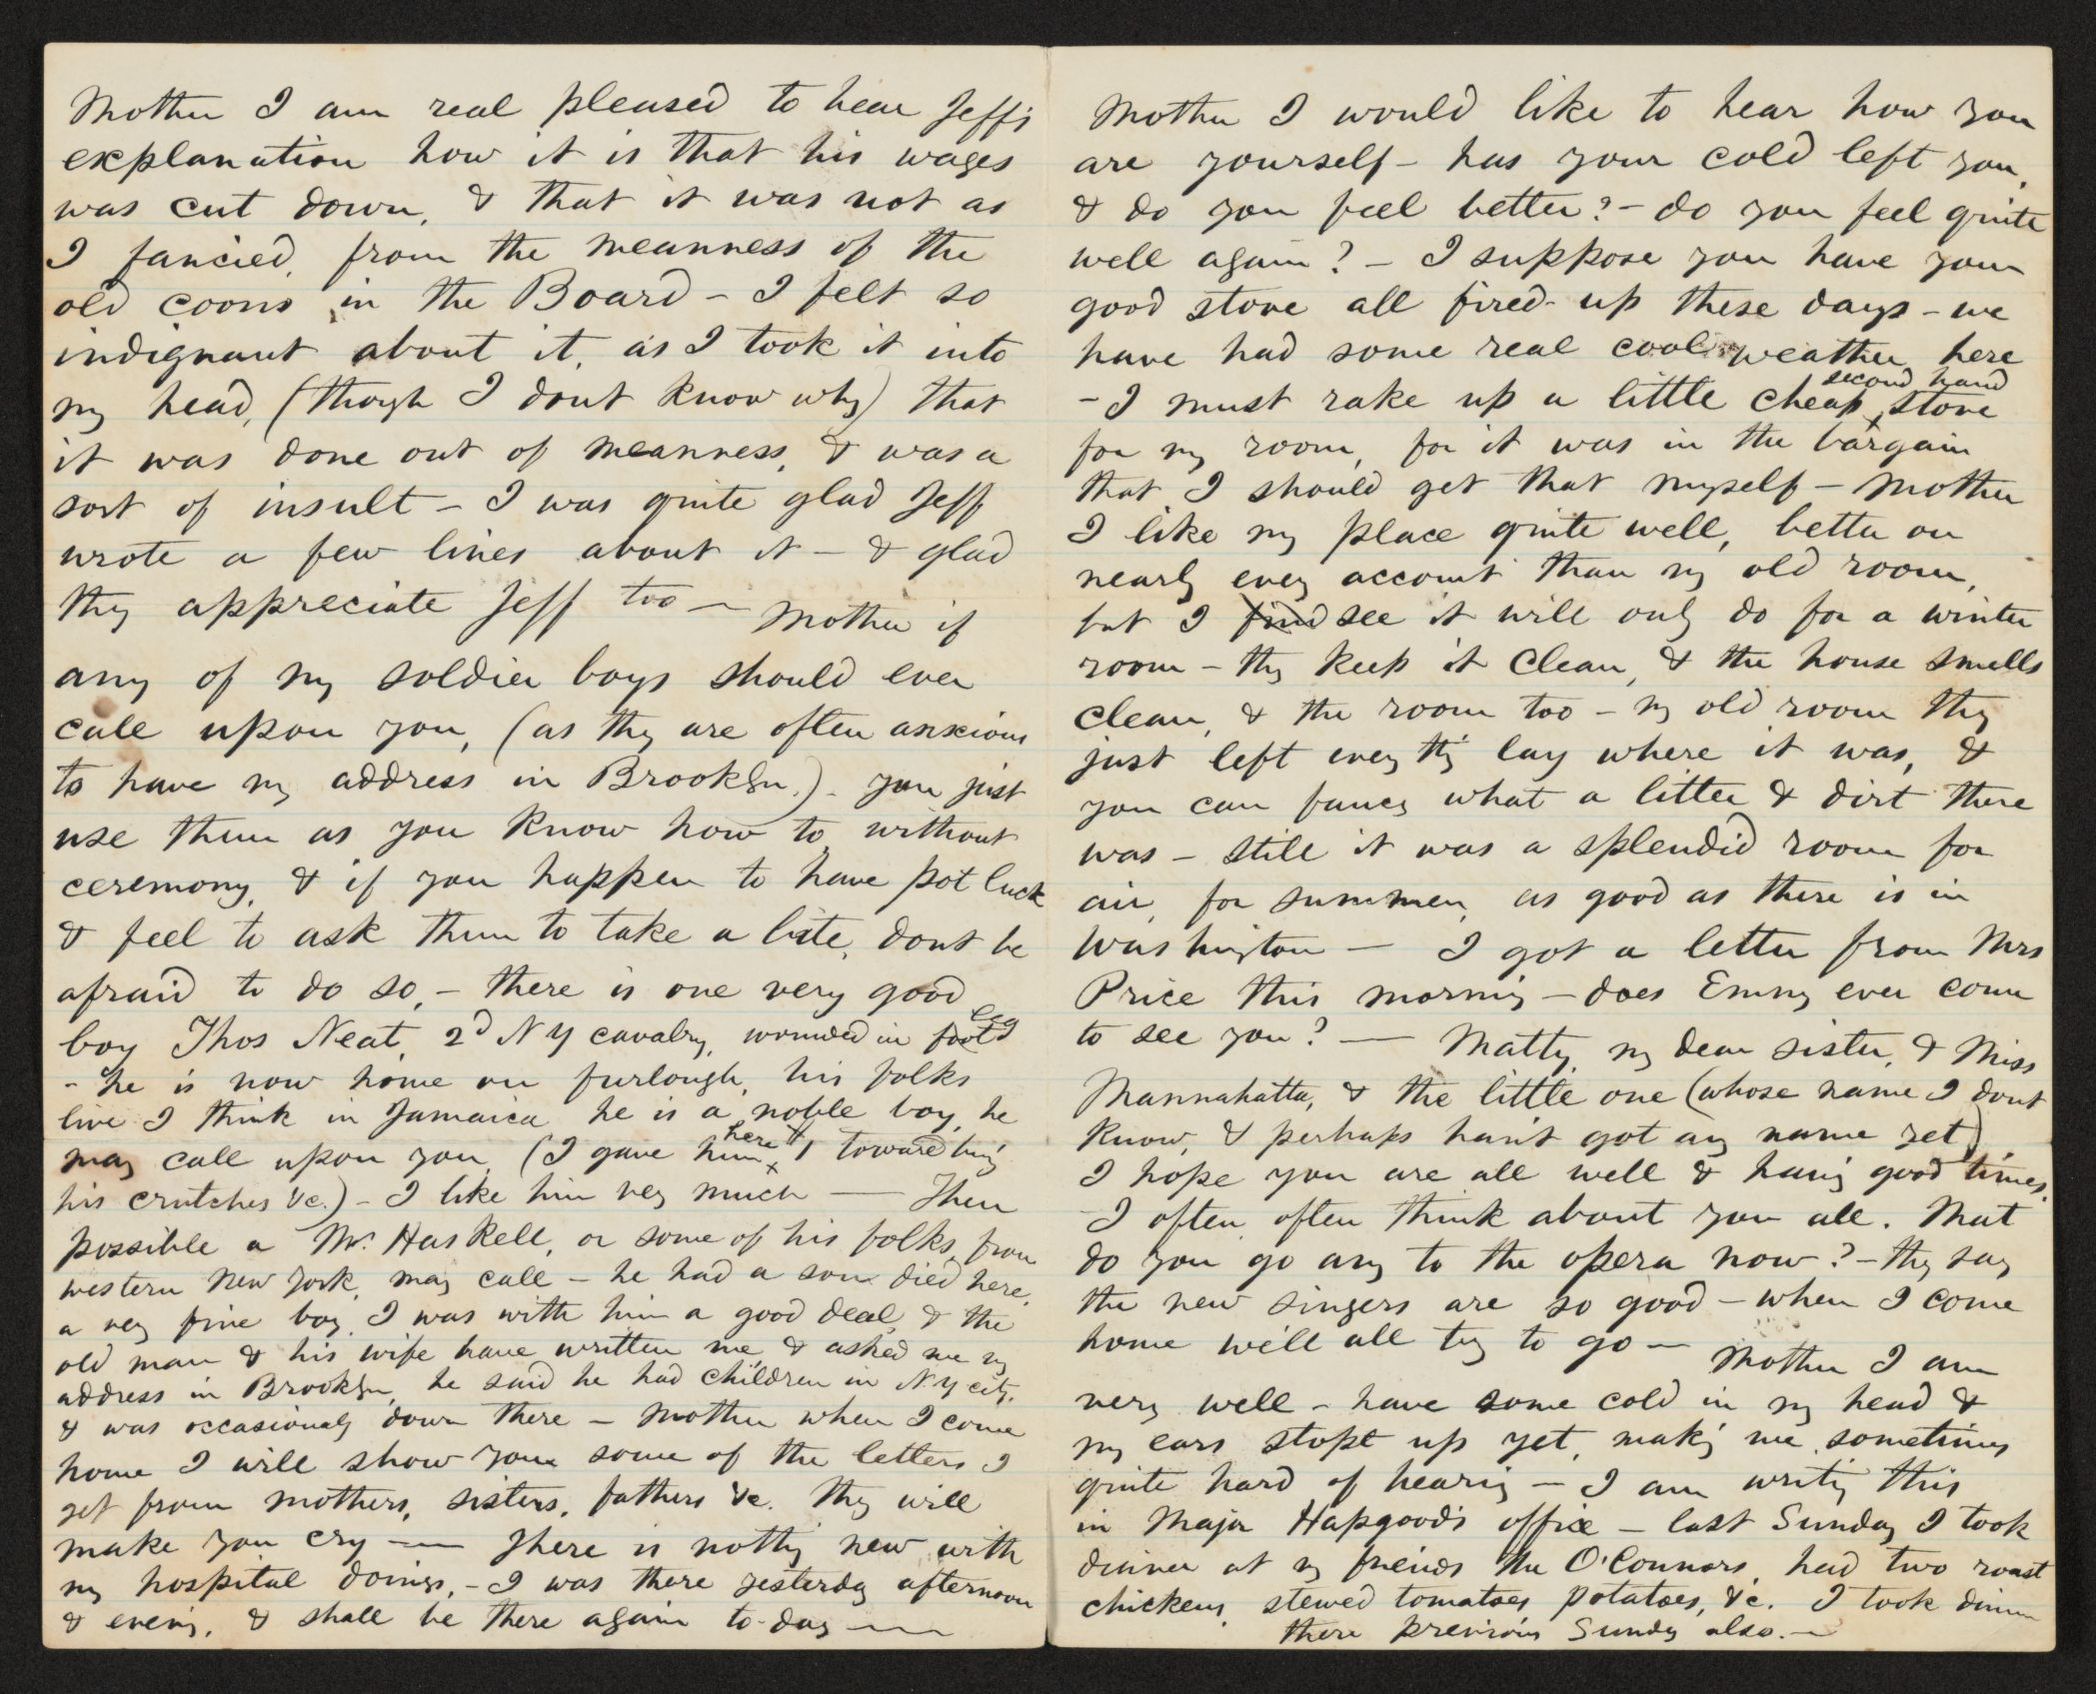 Mother I am real pleased to hear Jeff's
explanation how it is that his wages
was cut down, & that it was not as
I fancied, from the meanness of the
old coons in the Board – I felt so
indignant about it, as I took it into
my head, (though I dont know why) that
it was done out of meanness, & was a
sort of insult – I was quite glad Jeff
wrote a few lines about it – & glad
they appreciate Jeff too – Mother if
any of my soldier boys should ever
call upon you, (as they are often anxious
to have my address in Brooklyn,) – you just
use them as you know how to without
ceremony, & if you happen to have pot luck
& feel to ask them to take a bite, dont be
afraid to do so, – there is one very good
boy Thos Neat, 2d N Y cavalry, wounded in foot leg
– he is now home on furlough, his folks
live I think in Jamaica he is a noble boy, he
may call upon you, (I gave him here $1 toward buy'g
his crutches &c.) – I like him very much — Then
possible a Mr. Haskell, or some of his folks, from
western New York, may call – he had a son died here,
a very fine boy, I was with him a good deal, & the
old man & his wife have written me & asked me my
address in Brooklyn, he said he had children in N Y city,
& was occasionally down there – Mother when I come
home I will show you some of the letters I
get from mothers, sisters, fathers &c. They will
make you cry — There is nothing new with
my hospital doings, – I was there yesterday afternoon
& evening, & shall be there again to-day —
Mother I would like to hear how you
are yourself – has your cold left you,
& do you feel better? – do you feel quite
well again? – I suppose you have your
good stove all fired up these days – we
have had some real cool weather here
– I must rake up a little cheap second hand stove
for my room, for it was in the bargain
that I should get that myself – Mother
I like my place quite well, better on
nearly every account than my old room,
but I find see it will only do for a winter
room – they keep it clean, & the house smells
clean, & the room too – my old room they
just left every th'g lay where it was, &
you can fancy what a litter & dirt there
was – still it was a splendid room for
air, for summer, as good as there is in
Washington — I got a letter from Mrs
Price this morning – does Emmy ever come
to see you? — Matty, my dear sister, & Miss
Mannahatta, & the little one (whose name I dont
know, & perhaps han't got any name yet)
I hope you are all well & having good times,
I often, often think about you all. Mat
do you go any to the opera now? – they say
the new singers are so good – when I come
home we'll all try to go – Mother I am
very well – have some cold in my head &
my ears stopt up yet, making me sometimes
quite hard of hearing – I am writing this
in Major Hapgood's office – last Sunday I took
dinner at my friends the O'Connors, had two roast
chickens, stewed tomatoes, potatoes, &c. I took dinner
there previous Sunday also. –